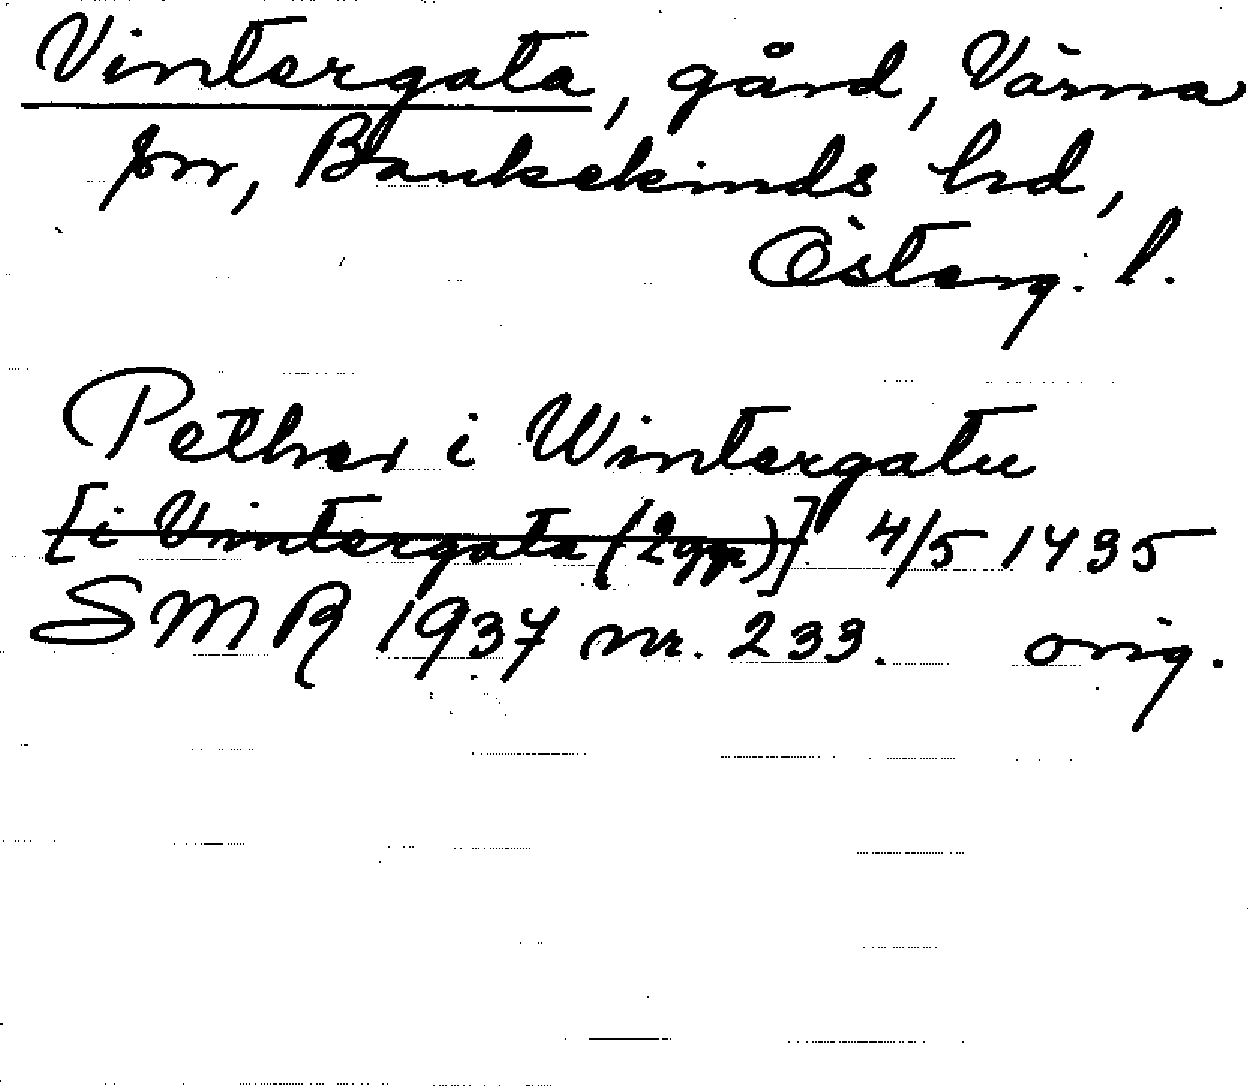 Vintergata, gård, Värna
sn, Bankekinds hd,
Österg. l.
Pether i Wintergatu
[i Vintergata (2 ggr)] 4/5 1435
SMR 1937 nr. 233. orig.